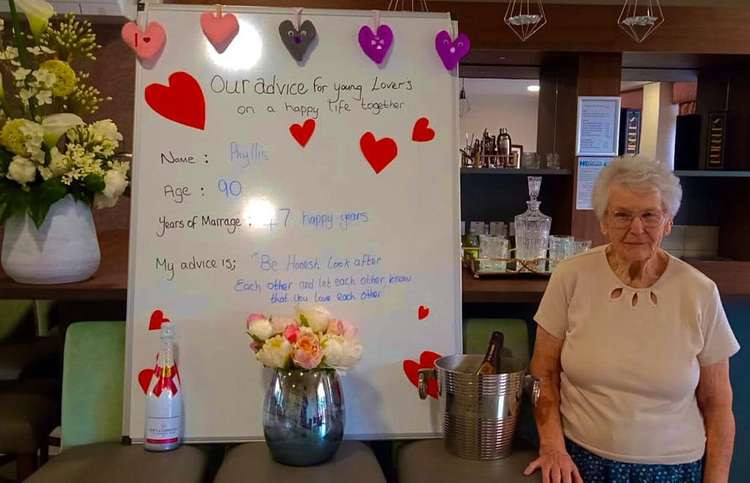 Our advice for young Lovers
on a happy life together
Name : Phyllis
Age : 90
Years of Marrage : 47 happy years
My advice is; "Be Honest, Look after
Each other and let each other know
that you Love each other